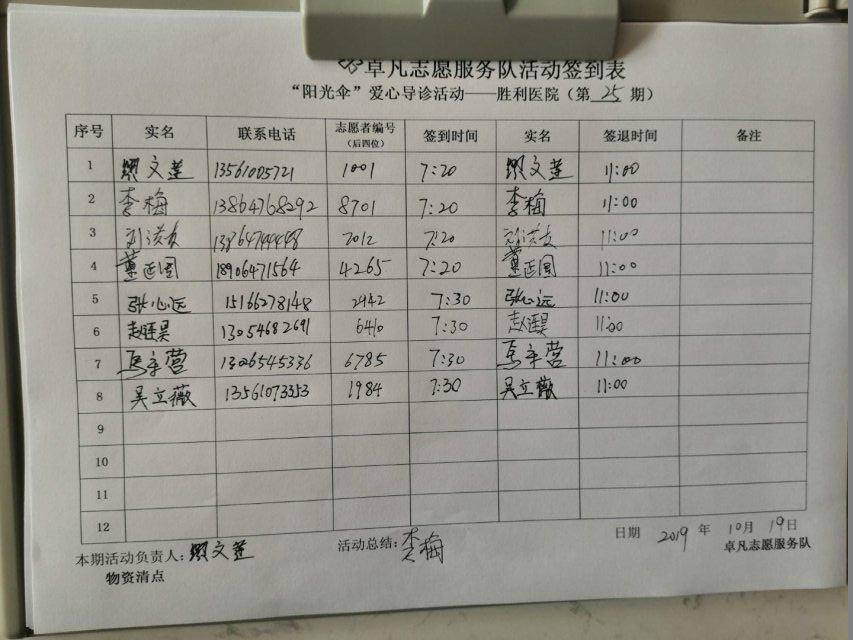 卓凡志愿服务队活动签到表
“阳光伞”爱心导诊活动——胜利医院（第 25 期）
序号 实名 联系电话 志愿者编号（后四位） 签到时间 实名 签退时间 备注
1 文莲 13561005721 1001 7:20 文莲 11:00
2 李梅 13864768292 8701 7:20 李梅 11:00
3 2012 7:20 11:00
4 18906471564 4265 7:20 11:00
5 张心远 15166278148 2442 7:30 张心远 11:00
6 赵廷昊 13054682691 6410 7:30 赵廷昊 11:00
7 1326545336 6785 7:30 11:00
8 吴立薇 13561073353 1984 7:30 吴立薇 11:00
9
10
11
12
本期活动负责人: 文莲 活动总结: 李梅 日期 2019 年 10月 19日
物资清点 卓凡志愿服务队